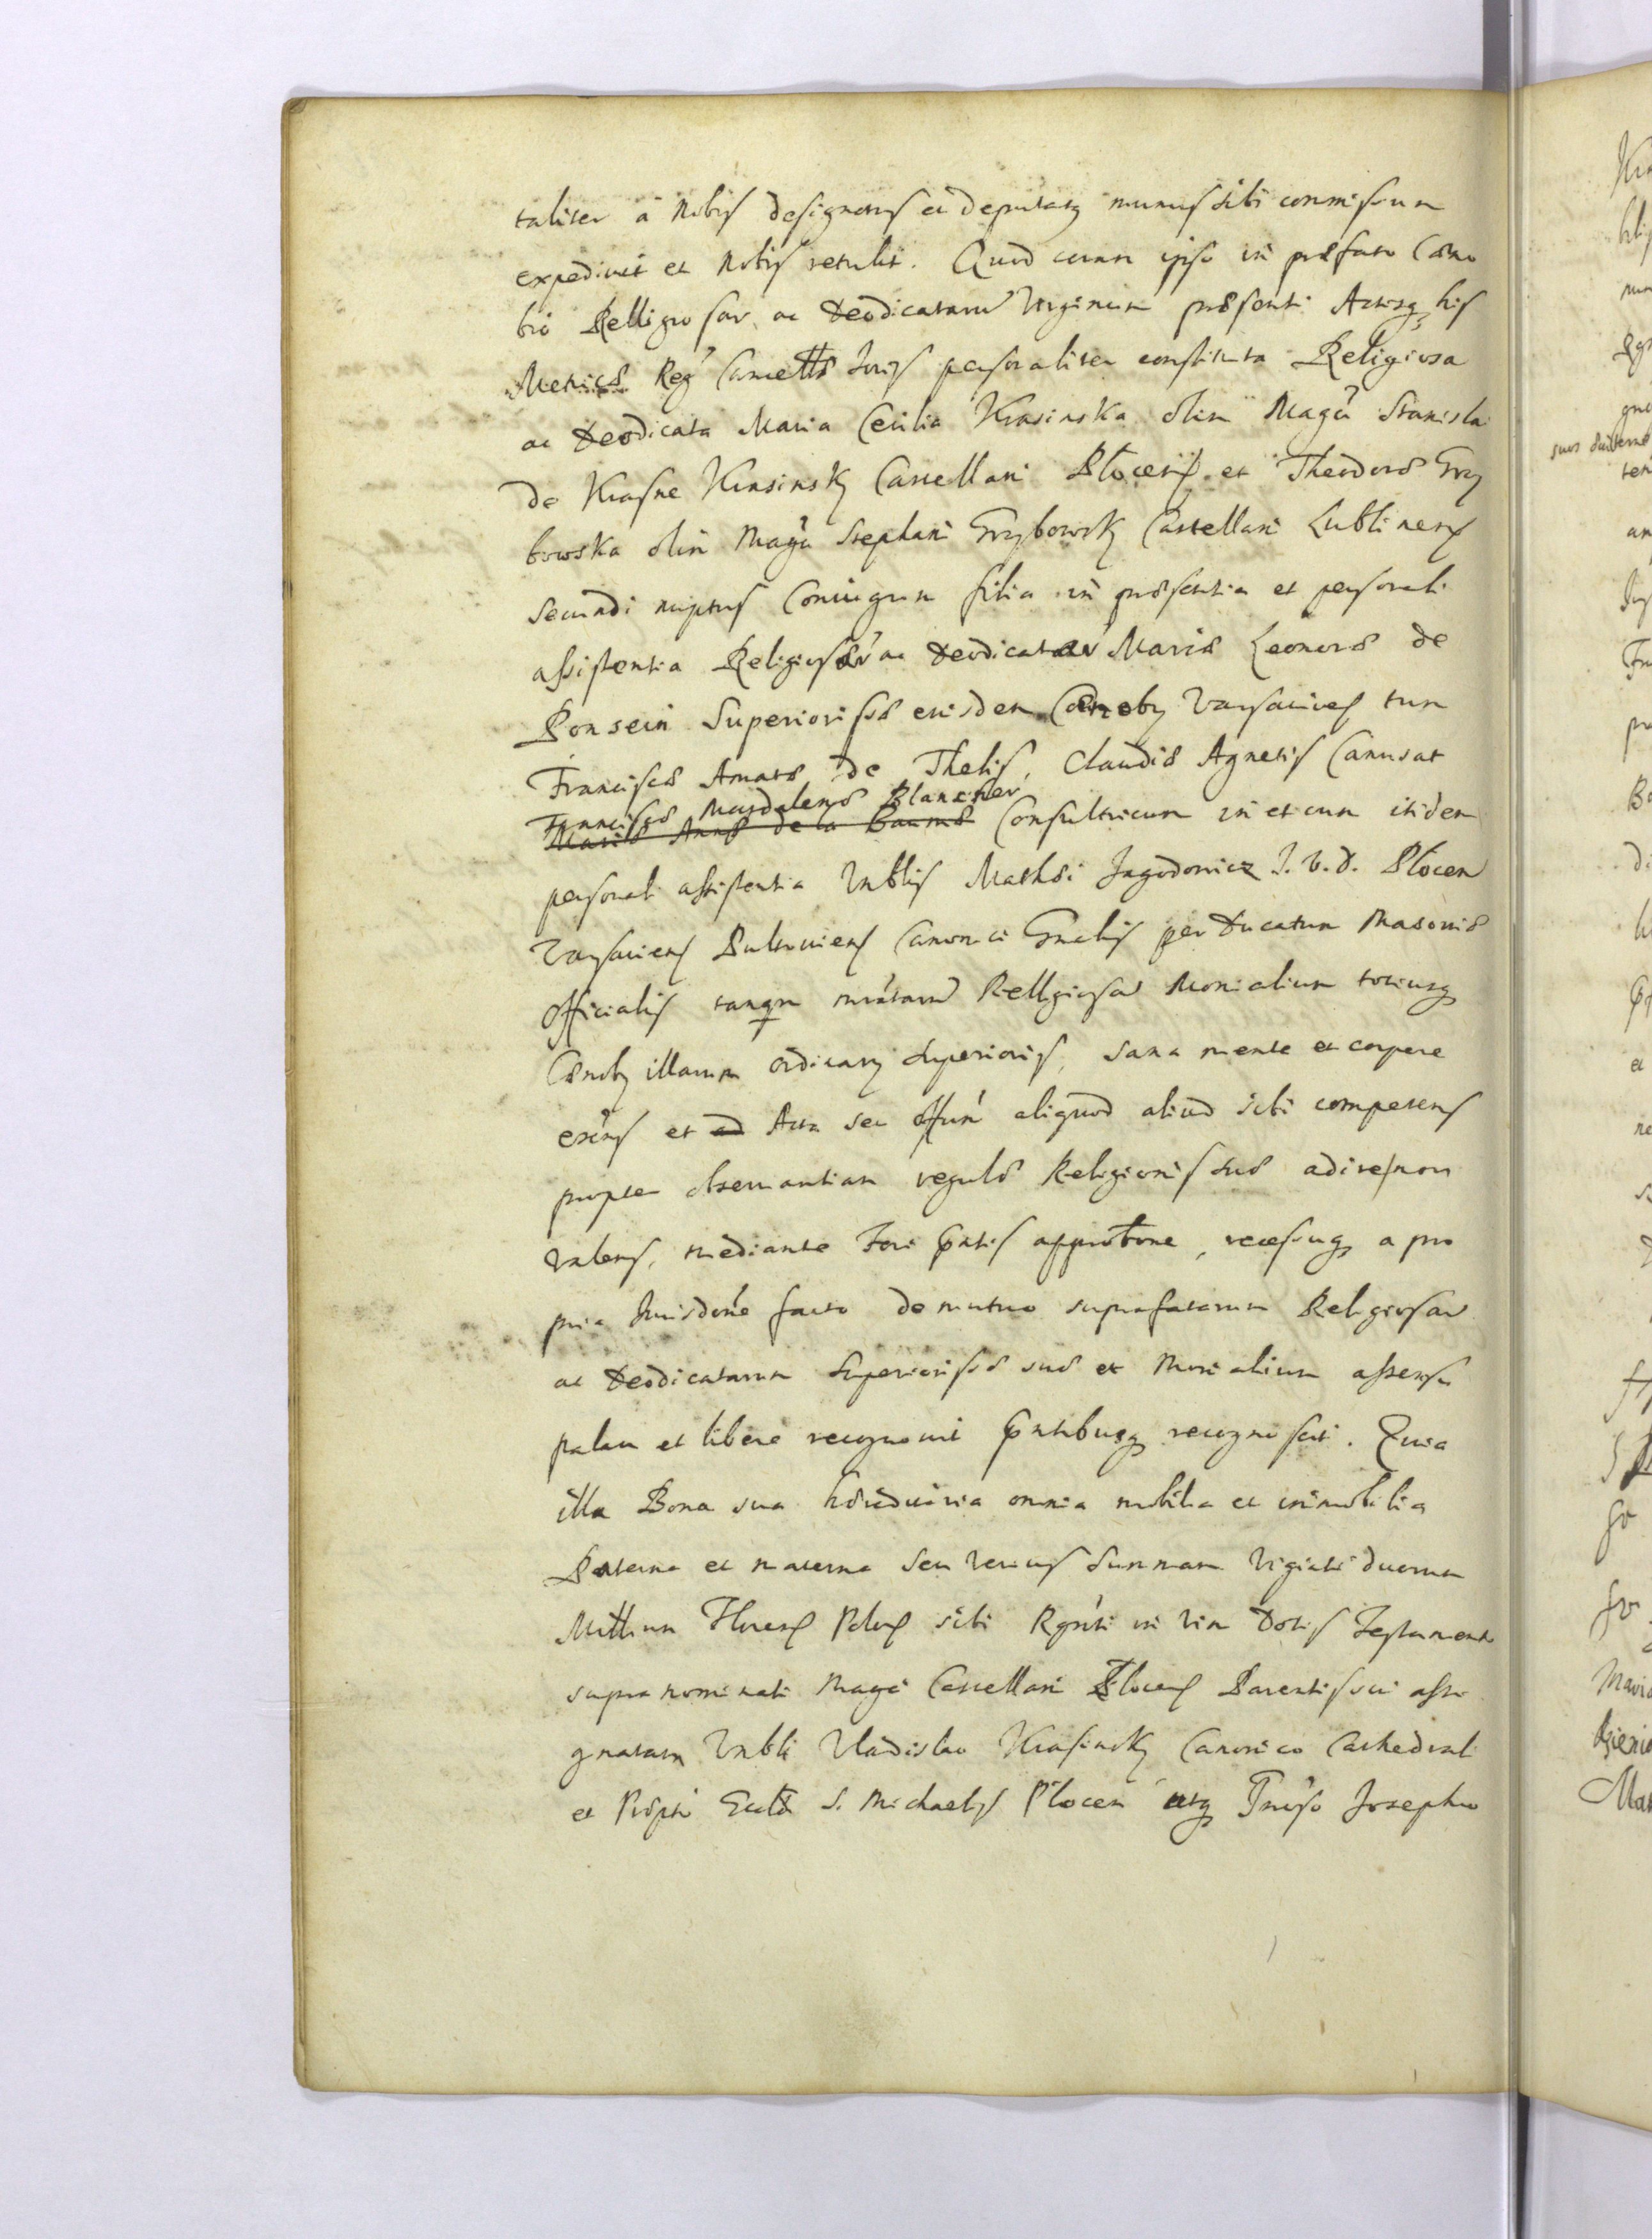 taliter á Nobis designatus et deputatus munus sibi commissum
expedivit et Nobis retulit. Quod coram ipso in præfato Cæno
bio Relligiosar ac Deodicatarum Virginum præsenti Actisq his
Metrices Reg Cancellæ personaliter constituta Religiosa
ac Deodicata Maria Cecilia Krasinska olim Magci Stanislai
de Krasne Krasinsky Castellani Plocens et Theodoræ Grzy
bowska olim Magci Stephani Grzybowsky Castellani Lublinens
secundi nuptus Coniugum filia in præsentia et personali
assistentia Religiosar ac Deodicatar Mariæ Leonoræ de
Ponsein Superiorissæ eiusdem Cænoby Varsaviens tum
Franciscæ Amatæ de Thelis, Claudiæ Agnetis Canusat
Franciscæ Magdalenæ Blancher
Mariæ Annæ de la Baumæ Consultricum in et cum itidem
personali assistentia Vnblis Mathæi Jagodowicz J. V. D. Plocen
Varsaviens Pultoviens Canonici Gnalis per Ducatum Masoviæ
Officialis tanqm Relligiosar Monialium totiusq
Cænoby illarum ordinary Superioris, sana mente et corpore
exens et ad Acta seu Offum aliquod aliud sibi competens
propter observantiam regulæ Religionis suæ adire non
valens, mediante Fori pntis approbone, recessuq a pro
pria Iurisdone facto de mutuo suprafatarum Religiosar
ac Deodicatarum Superiorissæ suæ et Monialium assensu
palam et libere recognovit pntibusq recognoscit. Quia
illa Bona sua hæreditaria omnia mobilia et immobilia
Paterna et materna seu verius Summam Viginti duorum
Millium Florens Polons sibi Rgnti in vim Dotis Testamento
supranominati Magci Castellani Plocens Parentis sui assi
gnatam Vnbli Vladislao Krasinsky Canonico Cathedrali
et Præpto Eccla S. Michaelis Plocen atq Gnoso Josepho